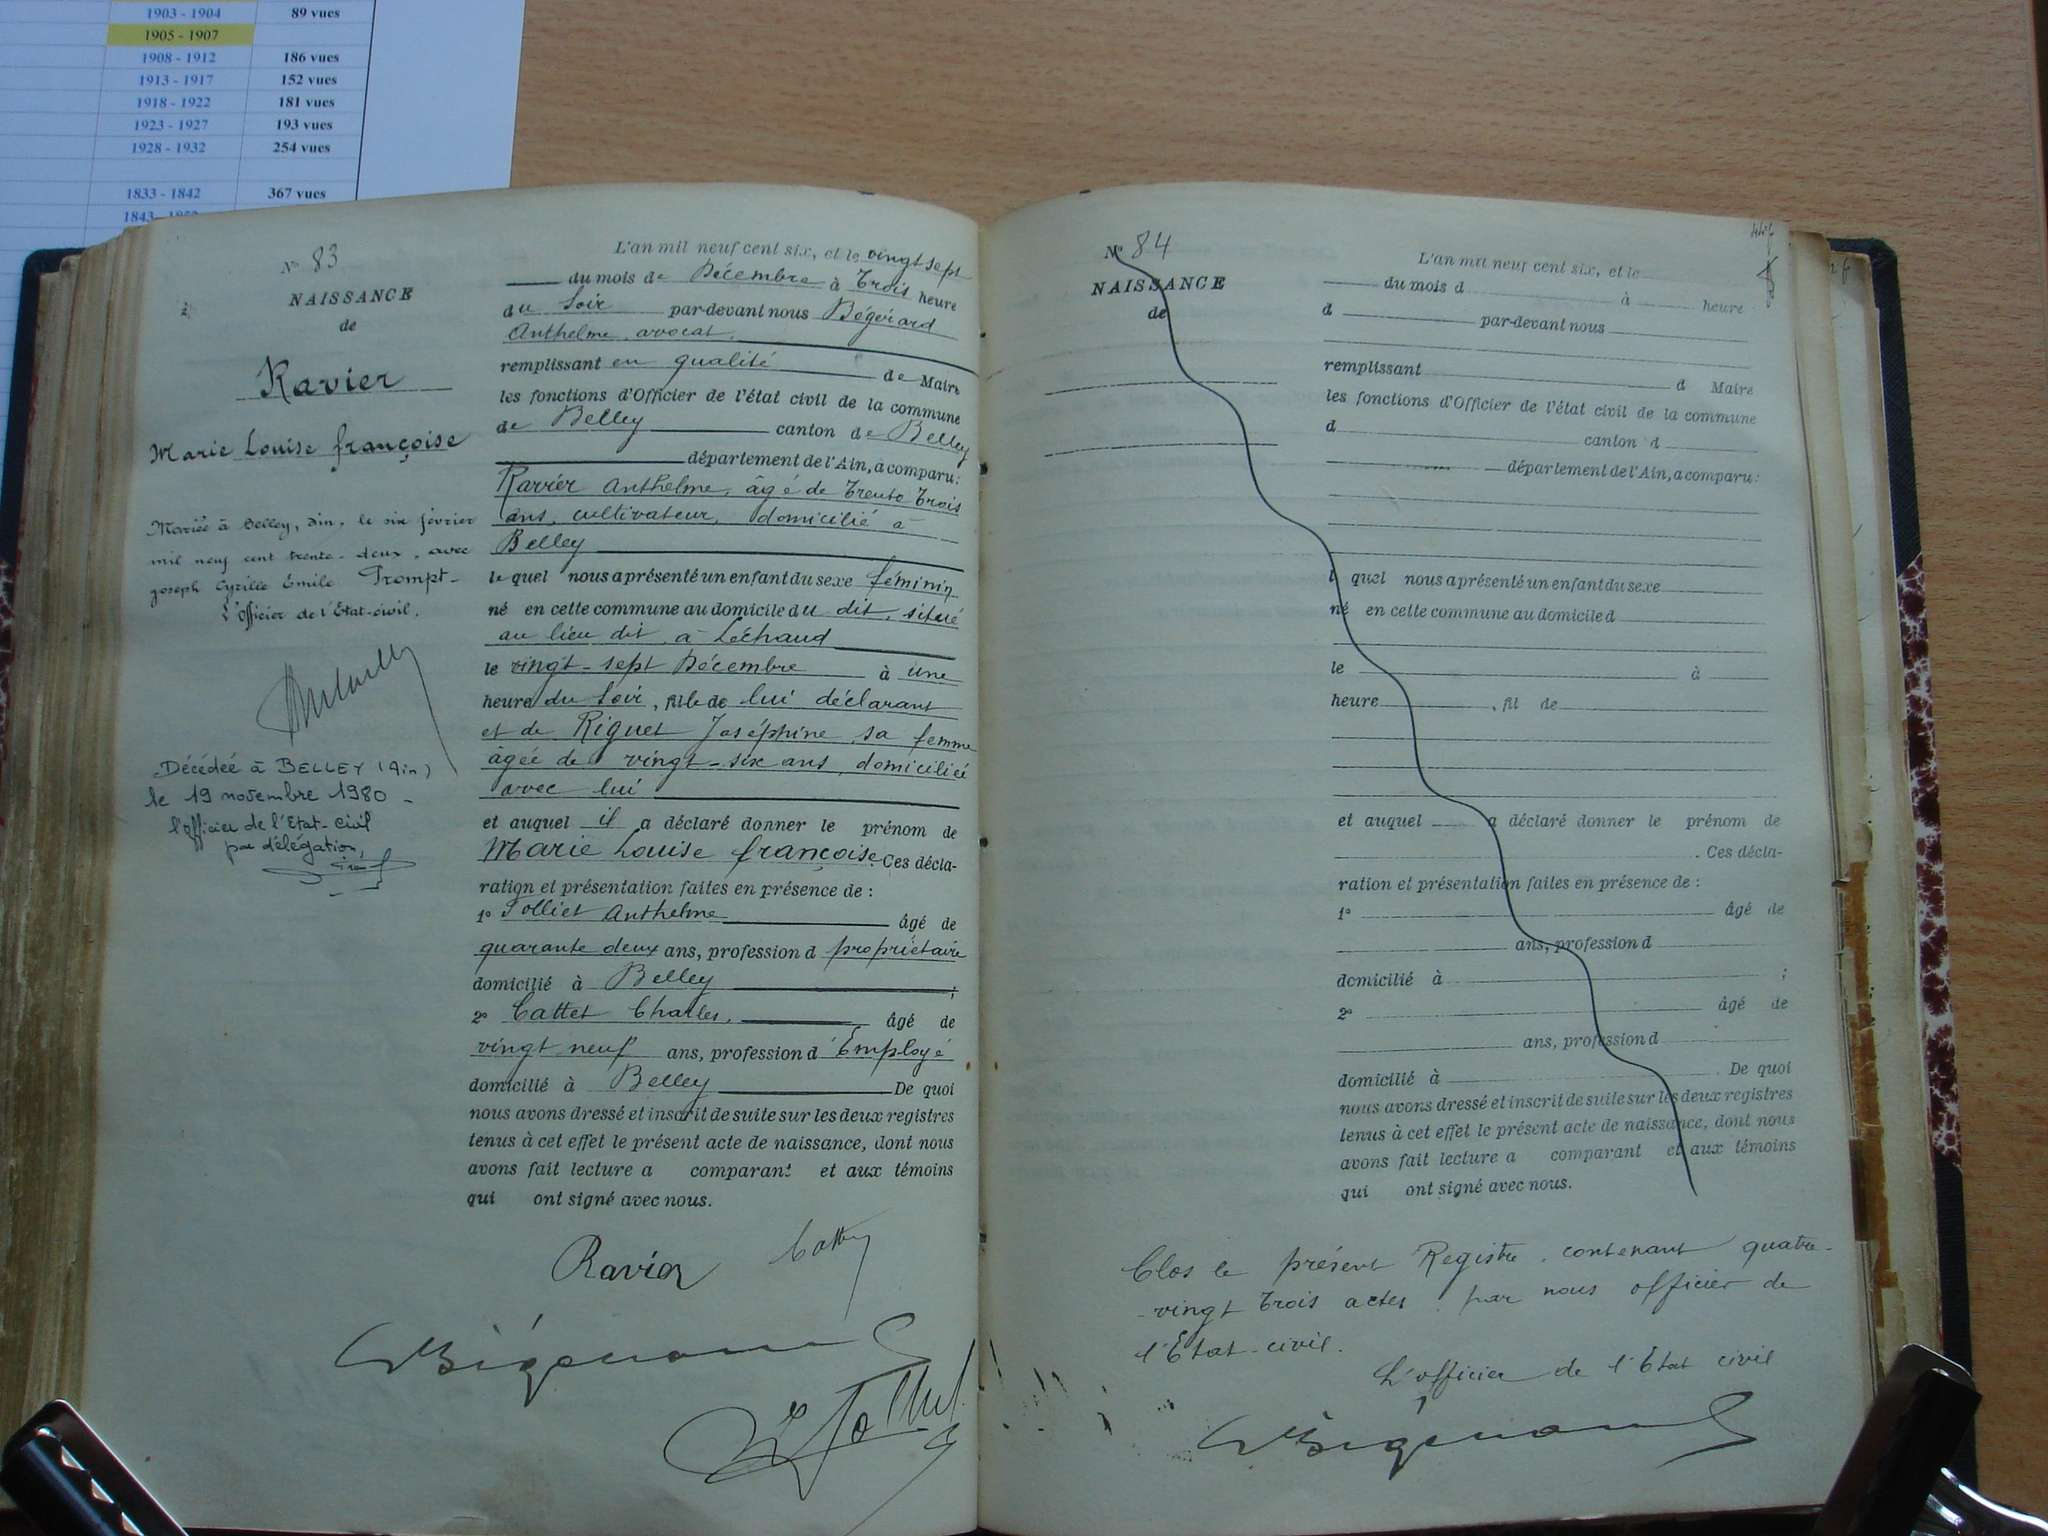 1903 - 1904 89 vues
1905 - 1907
1908 - 1912 186 vues
1913 - 1917 152 vues
1918 - 1922 181 vues
1923 - 1927 193 vues
1928 - 1932 254 vues
1833 - 1842 367 vues
1843 -
N° 83
NAISSANCE
de
Ravier
Marie Louise françoise
Mariée à Belley, Ain, le six février
mil neuf cent trente-deux, avec
joseph Cyrille Emile Prompt-
L'Officier de l'Etat-civil.
Décédée à BELLEY (Ain)
le 19 novembre 1980 -
l'officier de l'Etat-civil
par délégation,
L'an mil neuf cent six, et le vingt sept
du mois de Décembre à Trois heure
du Soir par-devant nous Bégérard
Anthelme, avocat,
remplissant en qualité de Maire
les fonctions d'Officier de l'état civil de la commune
de Belley canton de Belley
département de l'Ain, a comparu:
Ravier Anthelme, âgé de Trente Trois
ans, cultivateur, domicilié à
Belley
le quel nous a présenté un enfant du sexe féminin
né en cette commune au domicile du dit, situé
au lieu dit, à Léchaud
le vingt-sept Décembre à une
heure du Soir, fille de lui déclarant
et de Riquet Joséphine, sa femme
âgée de vingt-six ans, domiciliée
avec lui
et auquel il a déclaré donner le prénom de
Marie Louise françoise. Ces décla-
ration et présentation faites en présence de :
1° Jolliet Anthelme âgé de
quarante deux ans, profession d propriétaire
domicilié à Belley ;
2° Cattet Charles, âgé de
vingt neuf ans, profession d'Employé
domicilié à Belley De quoi
nous avons dressé et inscrit de suite sur les deux registres
tenus à cet effet le présent acte de naissance, dont nous
avons fait lecture a comparant et aux témoins
qui ont signé avec nous.
Ravier
N° 84
NAISSANCE
de
L'an mil neuf cent six, et le
du mois d à heure
d par-devant nous
remplissant d Maire
les fonctions d'Officier de l'état civil de la commune
d canton d
département de l'Ain, a comparu:
l quel nous a présenté un enfant du sexe
né en cette commune au domicile d
le à
heure , fil de
et auquel a déclaré donner le prénom de
. Ces décla-
ration et présentation faites en présence de :
1° âgé de
ans, profession d
domicilié à ;
2° âgé de
ans, profession d
domicilié à . De quoi
nous avons dressé et inscrit de suite sur les deux registres
tenus à cet effet le présent acte de naissance, dont nous
avons fait lecture a comparant et aux témoins
qui ont signé avec nous.
Clos le présent Registre, contenant quatre-
-vingt Trois actes, par nous officier de
l'Etat-civil.
L'officier de l'Etat civil